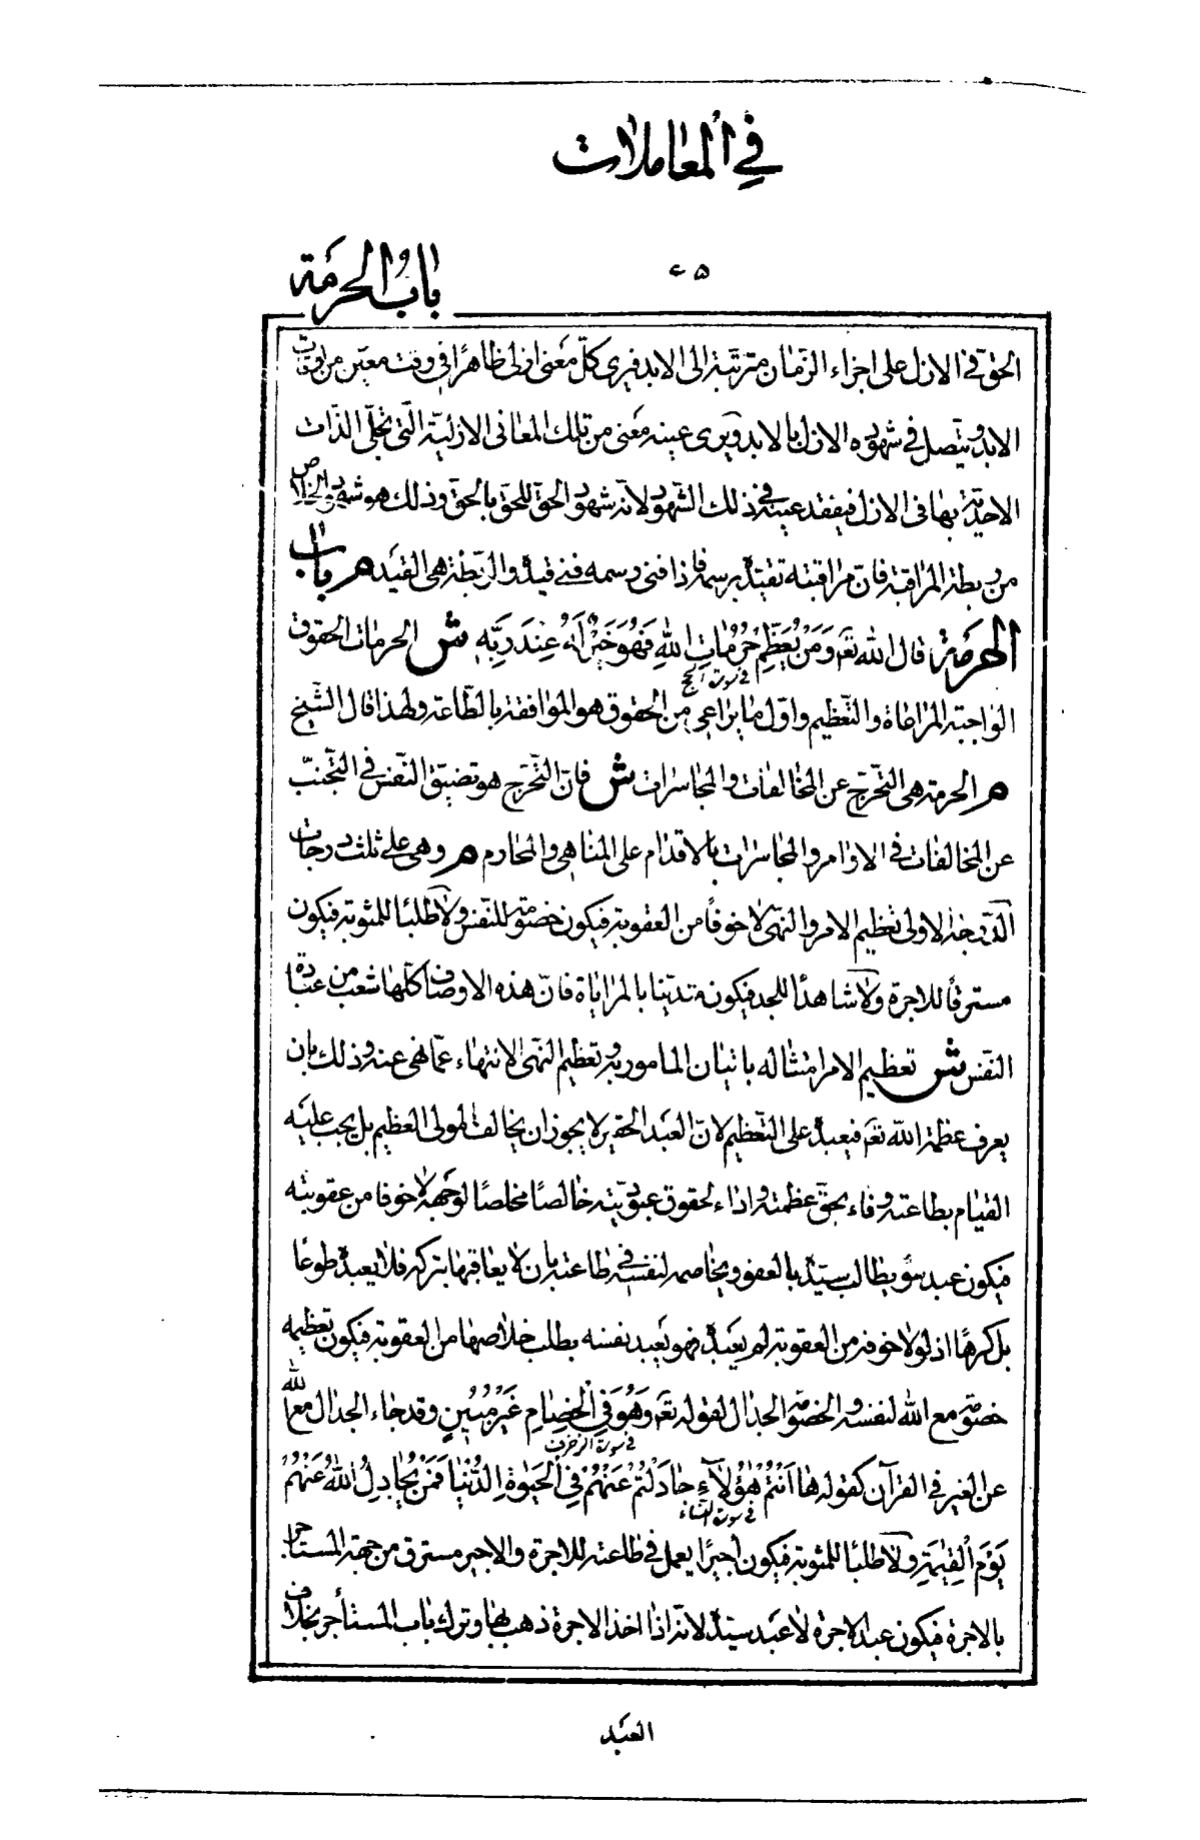 في المعاملات
٤٥
باب الحرمة
الحق في الازل على اجزاء الزمان مترتبة الى الابد فيرى كل معنى ازلى ظاهرا في وقت معين من اوقات
الابد ويتصل في شهوده الازل بالابد ويرى عينه معنى من تلك المعانى الازلية التى تجلى الذات
الاحدية بها في الازل فيفقد عينه في ذلك الشهود لانه شهود الحق للحق بالحق وذلك هو شهود الخلاص
من ربطة المراقبة فان مراقبته تقيده برسمه فاذا فنى رسمه فنى قيده والربطة هى القيد م باب
الحرمة قال الله تع وَمَنْ يُعَظِّمْ حُرُمَاتِ اللهِ فَهُوَ خَيْرٌ لَهُ عِنْدَ رَبِّهِ ش الحرمات الحقوق
في سورة الحج
الواجبة المراعاة والتعظيم واول ما يراعى من الحقوق هو الموافقة بالطاعة ولهذا قال الشيخ
م الحرمة هى التحرّج عن المخالفات والمجاسرات ش فان التحرّج هو تضييق النفس في التجنب
عن المخالفات في الاوامر والمجاسرات بالاقدام على المناهى والمحارم م وهى على ثلث درجات
الدرجة الاولى تعظيم الامر والنهى لا خوفًا من العقوبة فيكون خصومة للنفس ولا طلبا للمثوبة فيكون
مسترقا للاجرة ولا شاهدًا للجد فيكون متدينا بالمراياة فان هذه الاوصاف كلها شعب من عبادة
النفس ش تعظيم الامر امتثاله باتيان المامور به وتعظيم النهى الانتهاء عما نهى عنه وذلك بان
يعرف عظمة الله تع فيعبده على التعظيم لان العبد الحقير لا يجوز ان يخالف المولى العظيم بل يجب عليه
القيام بطاعته وفاء بحق عظمته واداء لحقوق عبوديته خالصًا مخلصًا لوجهه لا خوفا من عقوبته
فيكون عبد سوء يطالب سيده بالعفو ويخاصمه لنفسه في طاعته بان لا يعاقبها بتركه فلا يعبده طوعًا
بل كرهًا اذ لولا خوفه من العقوبة لم يعبده فهو يعبد نفسه بطلب خلاصها من العقوبة فيكون تعظيمه
خصومة مع الله لنفسه والخصومة الجدال لقوله تع وَهُوَ فِى الْخِصَامِ غَيْرُ مُبِينٍ وقد جاء الجدال مع الله
في سورة الزخرف
عن الغير في القرآن كقوله ها اَنْتُمْ هٰؤُلَآءِ جَادَلْتُمْ عَنْهُمْ فِى الْحَيٰوةِ الدُّنْيَا فَمَنْ يُجَادِلُ اللهَ عَنْهُمْ
في سورة النساء
يَوْمَ الْقِيٰمَةِ ولا طلبا للمثوبة فيكون اجيرًا يعمل في طاعته للاجرة والاجير مسترق من جهة المستاجر
بالاجرة فيكون عبد الاجرة لا عبد سيده لانه اذا اخذ الاجرة ذهب بها وترك باب المستأجر بخلاف
العبد